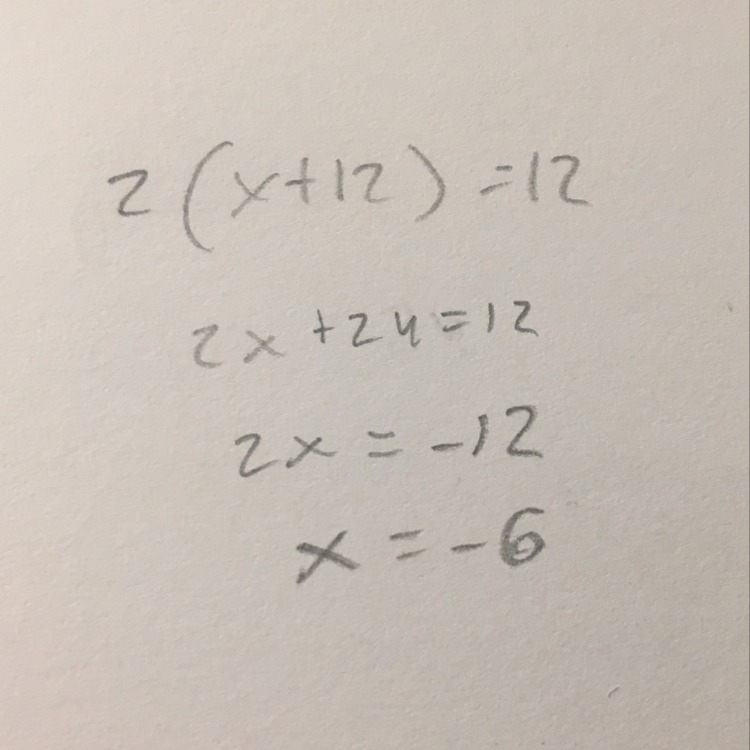 2(x+12)=12
2x+24=12
2x=-12
x=-6